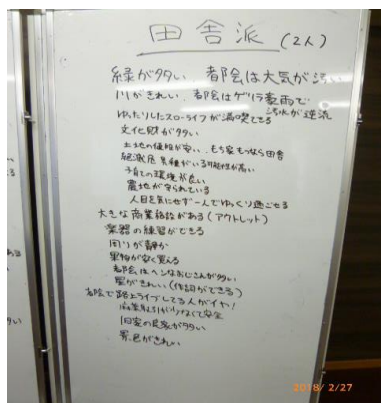 田舎派 (2人)
緑が多い 都会は大気が汚い
川がきれい. 都会はゲリラ豪雨で
汚水が逆流
ゆったりしたスローライフが満喫できる
文化財が多い
土地の値段が安い.. もち家もつなら田舎
絶滅危惧種がいる可能性が高い
子育ての環境が良い
農地が守られている
人目を気にせず一人でゆっくり過ごせる
大きな商業施設がある(アウトレット)
楽器の練習ができる
周りが静か
果物が安く買える
都会はヘンなおじさんが多い
星がきれい(作詞ができる)
都会で路上ライブしてる人がイヤ!
麻薬取引が少なくて安全
旧家の民家が多い
景色がきれい
2018/ 2/27